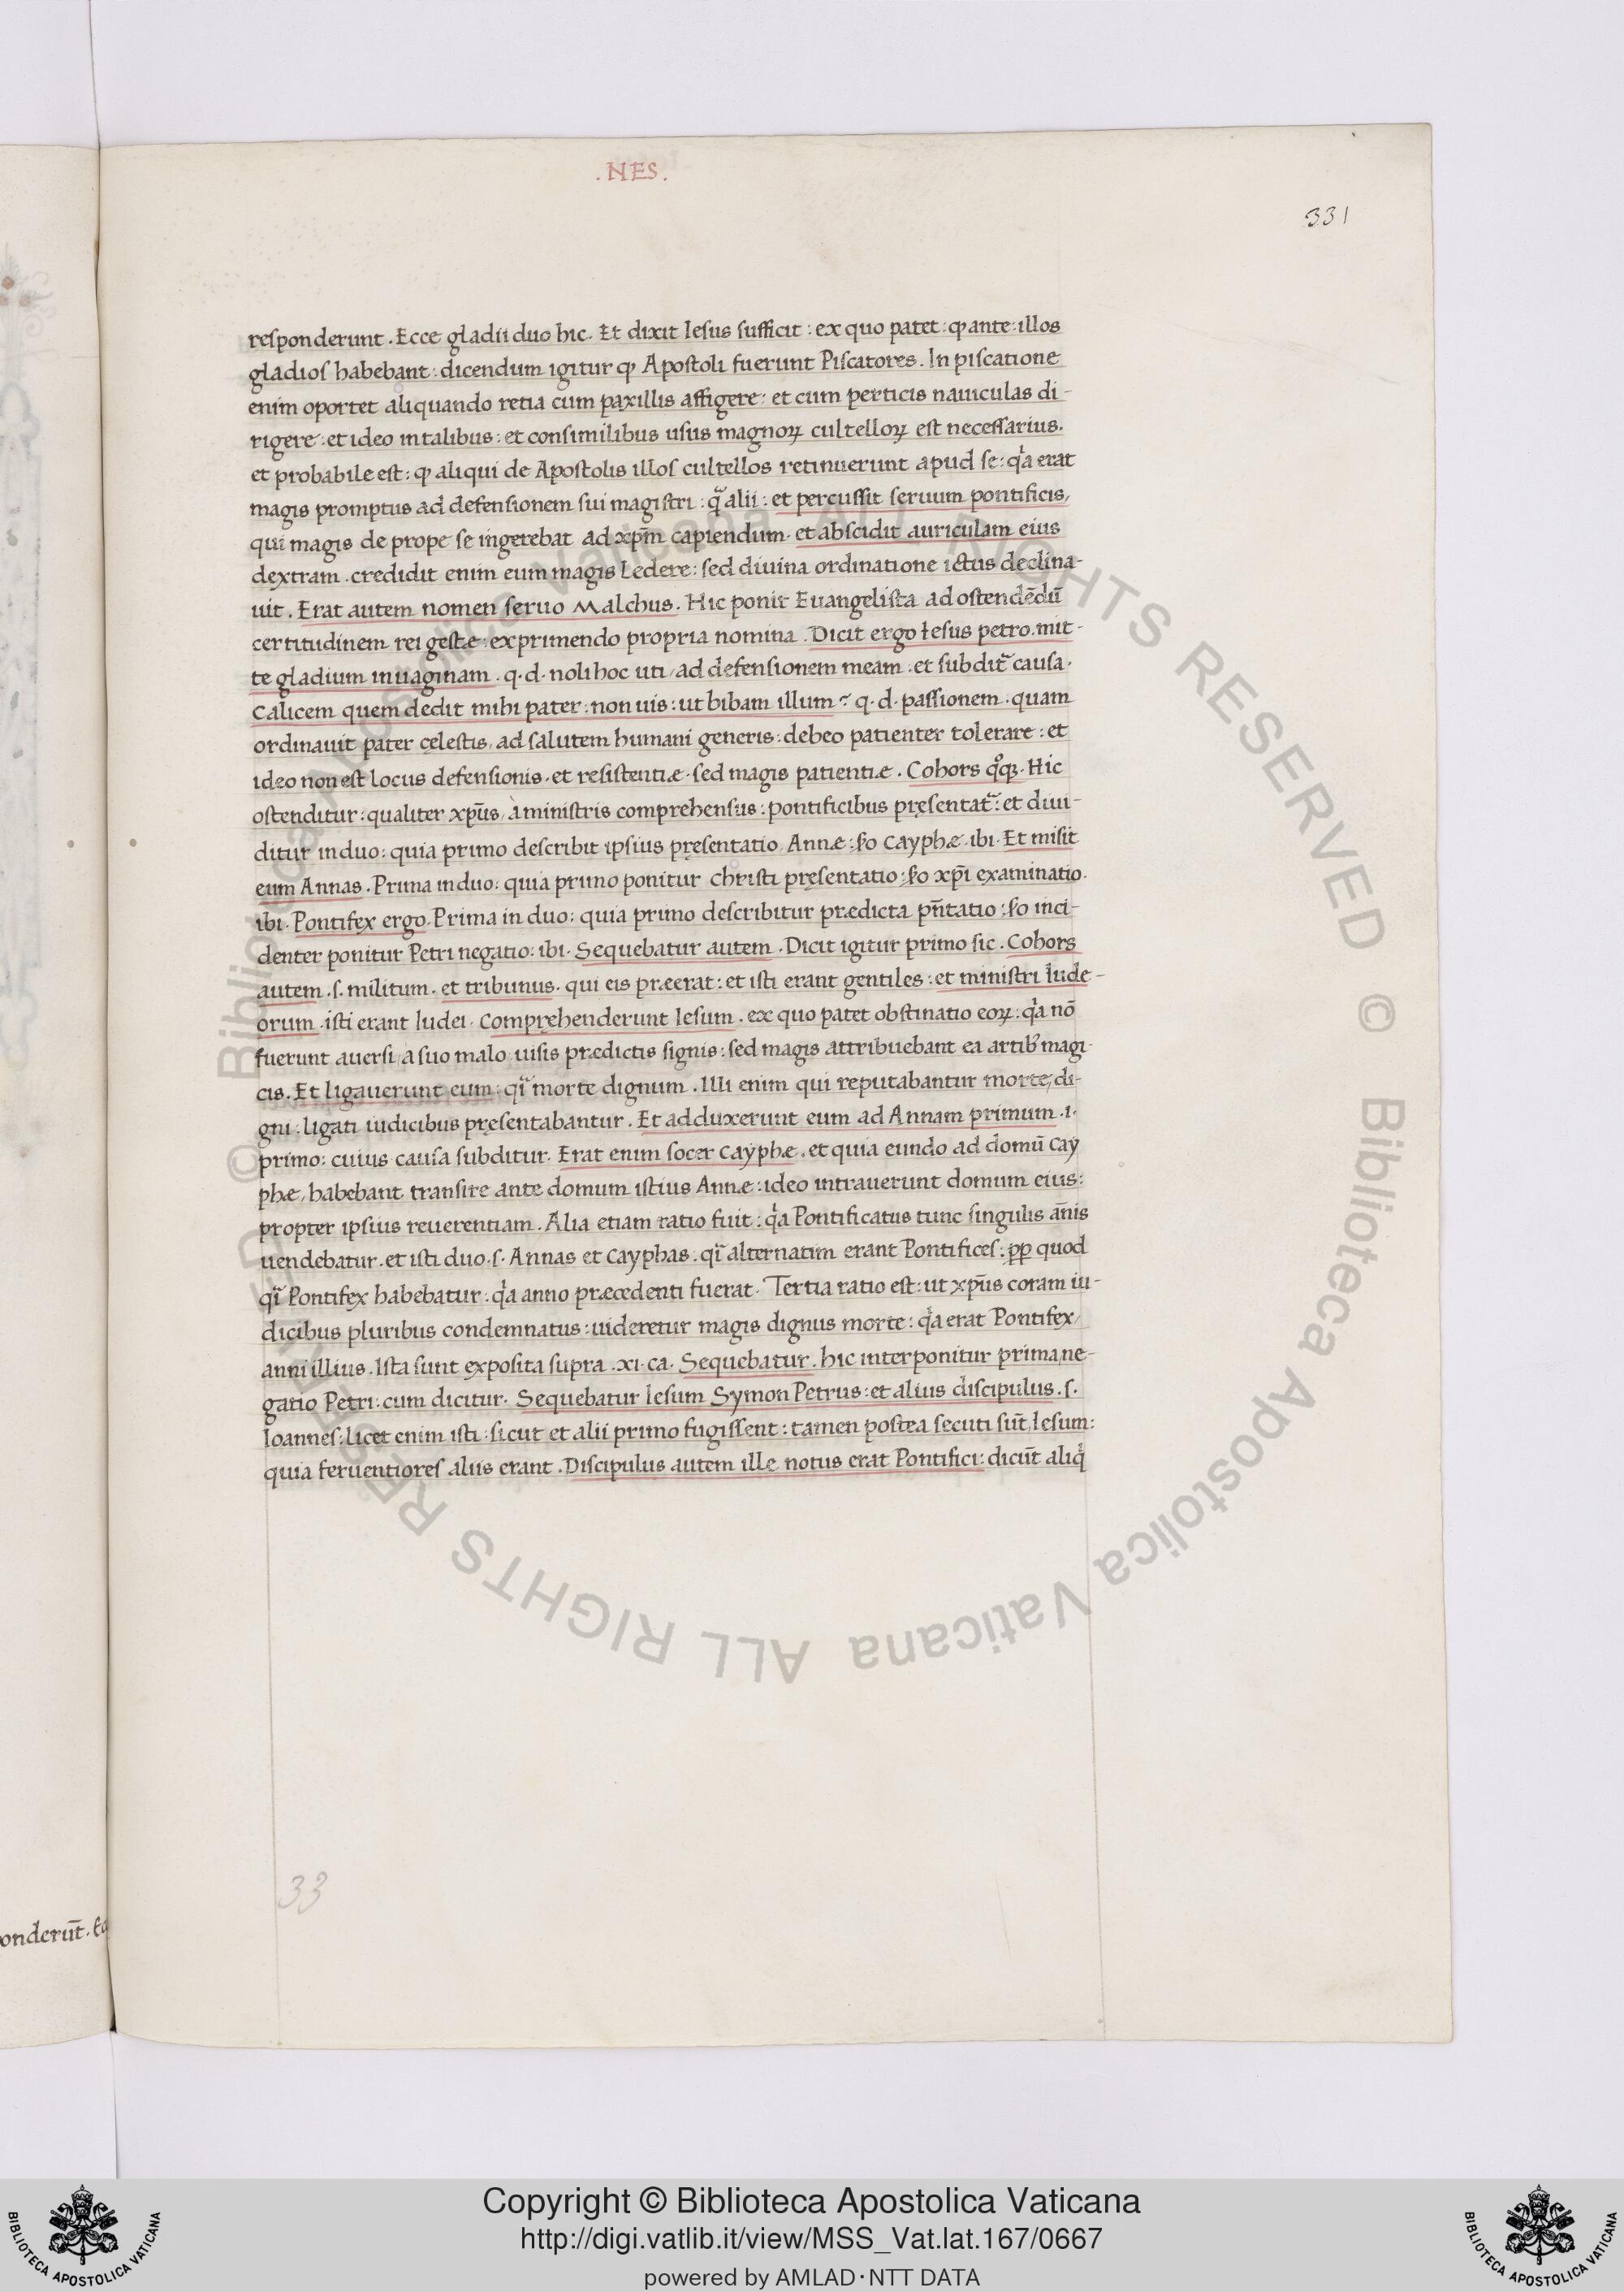 .NES.
331
responderunt . Ecce gladii duo hic . Et dixit Iesus sufficit : ex quo patet : ꝙ ante : illos
gladios habebant : dicendum igitur ꝙ Apostoli fuerunt Piscatores . In piscatione
enim oportet aliquando retia cum paxillis affigere : et cum perticis nauiculas di-
rigere : et ideo in talibus : et consimilibus usus magnoꝝ cultelloꝝ est necessarius .
et probabile est : ꝙ aliqui de Apostolis illos cultellos retinuerunt apud se : qͣa erat
magis promptus ad defensionem sui magistri : q̃ alii : et percussit seruum pontificis,
qui magis de prope se ingerebat ad xp̄m capiendum . et abscidit auriculam eius
dextram . credidit enim eum magis Ledere : sed diuina ordinatione ictus declina-
uit . Erat autem nomen seruo Malchus . Hic ponit Euangelista ad ostendēdū
certitudinem rei gestæ : exprimendo propria nomina . Dicit ergo Iesus petro . mit-
te gladium in uaginam . q . d . noli hoc uti / ad defensionem meam . et subdit᷑ causa .
Calicem quem dedit mihi pater : non uis : ut bibam illum ? q . d . passionem . quam
ordinauit pater cęlestis, ad salutem humani generis : debeo patienter tolerare : et
ideo non est locus defensionis . et resistentiæ . sed magis patientiæ . Cohors qͦꝗ . Hic
ostenditur : qualiter xp̄us / à ministris comprehensus : pontificibus pręsentat᷑ : et diui-
ditur in duo : quia primo describit ipsius pręsentatio Annæ : ſo Cayphæ . ibi . Et misit
eum Annas . Prima in duo : quia primo ponitur Christi pręsentatio : ſo xp̄i examinatio .
ibi . Pontifex ergo . Prima in duo : quia primo describitur prædicta pn̄tatio : ſo inci-
denter ponitur Petri negatio : ibi . Sequebatur autem . Dicit igitur primo sic . Cohors
autem . s . militum . et tribunus . qui eis præerat : et isti erant gentiles : et ministri Iude-
orum . isti erant Iudei . Compręhenderunt Iesum . ex quo patet obstinatio eoꝝ : qͣa nō
fuerunt auersi a suo malo uisis prædictis signis : sed magis attribuebant ea artibꝰ magi-
cis . Et ligauerunt eum : qͥ morte dignum . Illi enim qui reputabantur morte, di-
gni : ligati iudicibus pręsentabantur . Et adduxerunt eum ad Annam primum . i .
primo : cuius causa subditur . Erat enim socer Cayphæ . et quia eundo ad domū Cay
phæ, habebant transire ante domum istius Annæ : ideo intrauerunt domum eius :
propter ipsius reuerentiam . Alia etiam ratio fuit : qͣa Pontificatus tunc singulis an̄is
uendebatur . et isti duo . s . Annas et Cayphas . qͥ alternatim erant Pontifices : ꝓꝑ quod
qͥ Pontifex habebatur : qͣa anno præcedenti fuerat . Tertia ratio est : ut xp̄us coram iu-
dicibus pluribus condemnatus : uideretur magis dignus morte : qͣa erat Pontifex
anni illius . Ista sunt exposita supra . xi . ca . Sequebatur . hic interponitur prima, ne-
gatio Petri : cum dicitur . Sequebatur Iesum Symon Petrus : et alius discipulus . s .
Ioannes : licet enim isti : sicut et alii primo fugissent : tamen postea secuti sūt, Iesum :
quia feruentiores aliis erant . Discipulus autem ille notus erat Pontifici : dicūt aliqͥ
33
onderūt . Ec
© Biblioteca Apostolica Vaticana ALL RIGHTS RESERVED © Biblioteca Apostolica Vaticana ALL RIGHTS RESERVED
Copyright © Biblioteca Apostolica Vaticana
http://digi.vatlib.it/view/MSS_Vat.lat.167/0667
powered by AMLAD · NTT DATA
BIBLIOTECA APOSTOLICA VATICANA
BIBLIOTECA APOSTOLICA VATICANA